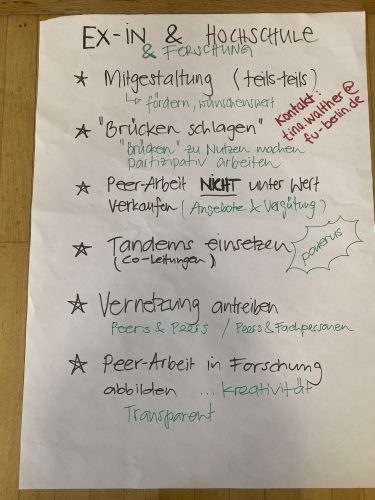 EX-IN & HOCHSCHULE
& FORSCHUNG
Mitgestaltung (teils-teils)
fördern, wünschenswert
Kontakt:
tina.walther@
fu-berlin.de
"Brücken schlagen"
"Brücken" zu Nutzen machen
partizipativ arbeiten
Peer-Arbeit NICHT unter Wert
verkaufen (Angebote & Vergütung)
Tandems einsetzen
(Co-Leitungen)
Vernetzung antreiben
Peers & Peers / Peers & Fachpersonen
Peer-Arbeit in Forschung
abbilden ... Kreativität
Transparent